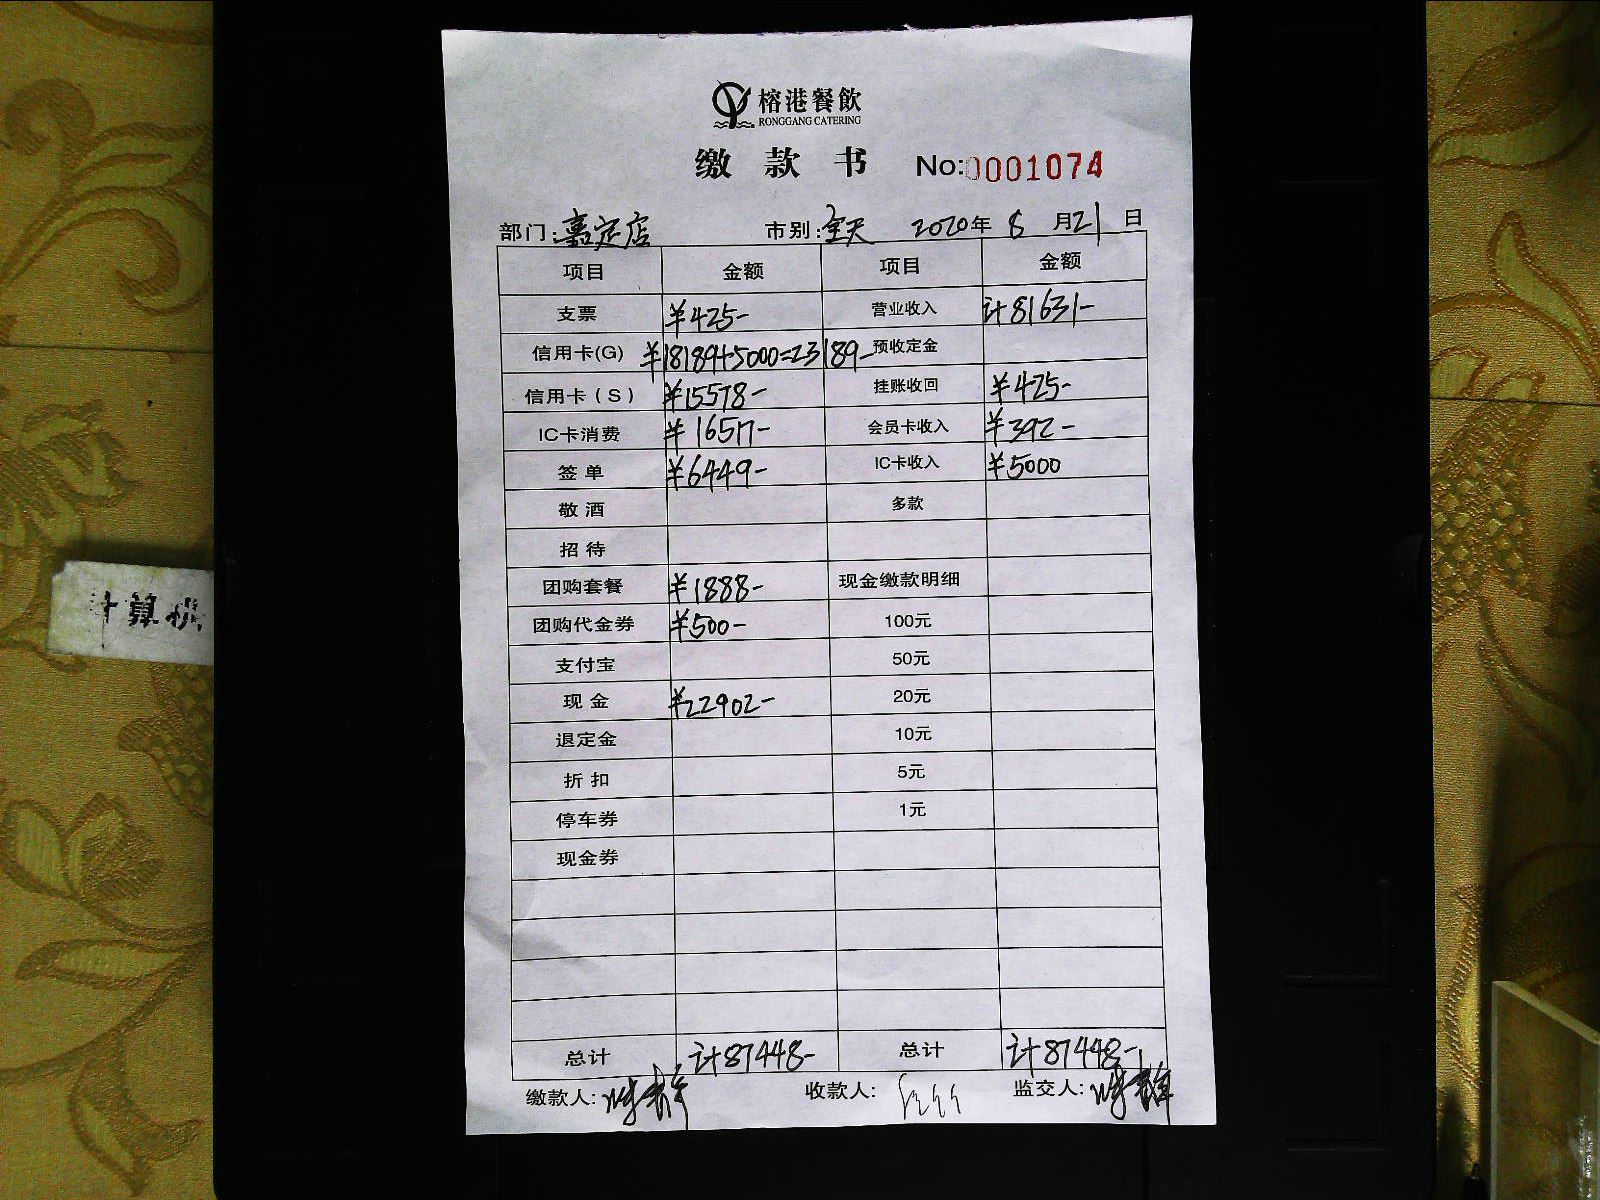 榕港餐飲
RONGGANG CATERING
缴款书 No:0001074
部门:嘉定店 市别:全天 2020年 8月21日
项目 金额 项目 金额
支票 ¥425- 营业收入 计81631-
信用卡(G) ¥18189+5000=23189- 预收定金
信用卡(S) ¥15578- 挂账收回 ¥425-
IC卡消费 ¥16517- 会员卡收入 ¥392-
签单 ¥6449- IC卡收入 ¥5000
敬酒 多款
招待
团购套餐 ¥1888- 现金缴款明细
团购代金券 ¥500- 100元
支付宝 50元
现金 ¥22902- 20元
退定金 10元
折扣 5元
停车券 1元
现金券
总计 计87448- 总计 计87448-
缴款人: 收款人: 监交人:
计算机